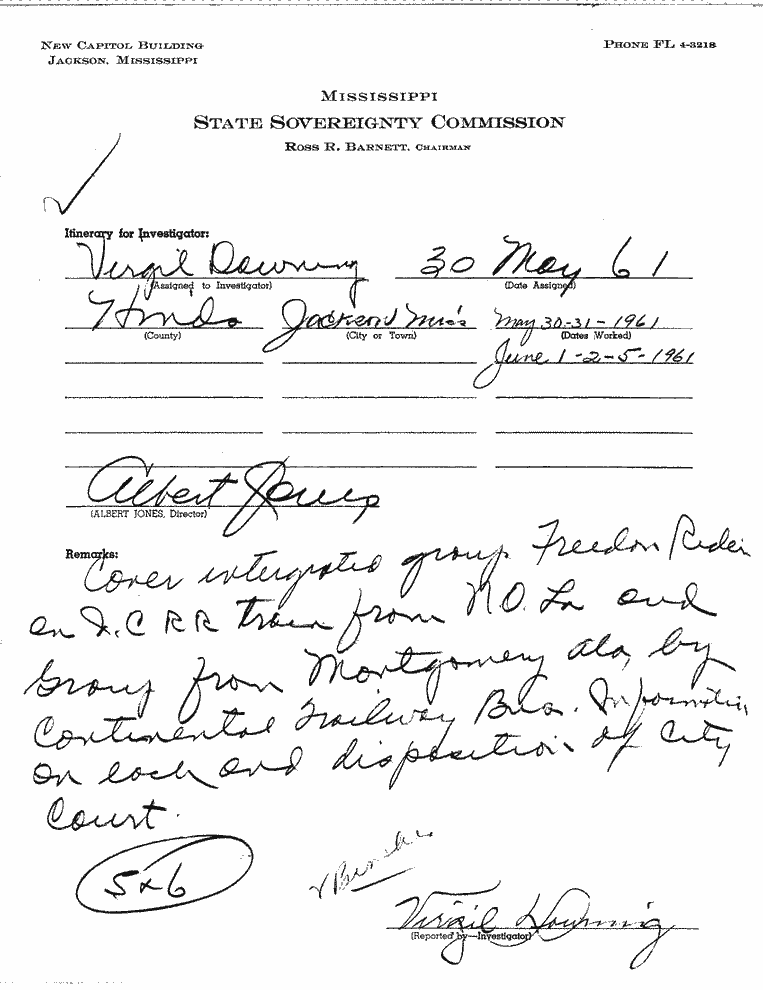 New Capitol Building
Jackson, Mississippi
Phone FL 4-3218
Mississippi
State Sovereignty Commission
Ross R. Barnett, Chairman
Itinerary for Investigator:
Virgil Downing 30 May 61
(Assigned to Investigator) (Date Assigned)
Hinds Jackson Miss May 30-31-1961
(County) (City or Town) (Dates Worked)
June 1-2-5-1961
Albert Jones
(ALBERT JONES, Director)
Remarks:
Cover intergrated group Freedom Rider
on I.C RR train from N.O. La and
Group from Montgomery Ala, by
Continental Trailway Bus. Information
on each and disposition of City
Court.
5+6
Virgil Downing
(Reported by—Investigator)